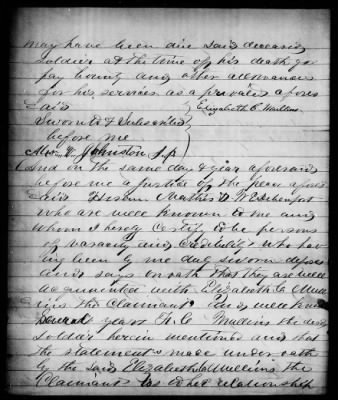 may have been due said deceased
soldier at the time of his death for
pay bounty and other allowances
for his services as a private afore
said Elizabeth C Mullins
Sworn to & Subscribed
before me
Johnston J.P.
And on the same day & year aforesaid
before me a justice of the peace afore
said Mathis & W
who are well known to me and
whom I hereby certify to be persons
of veracity and Credibility who hav
ing been by me duly sworn deposes
and says on oath that they are well
acquainted with Elizabeth C Mull
ins the Claimant and well knew
several years Mullins the decd
soldier herein mentioned and that
the statements made under oath
by the said Elizabeth C Mullins the
Claimant as to her relationship